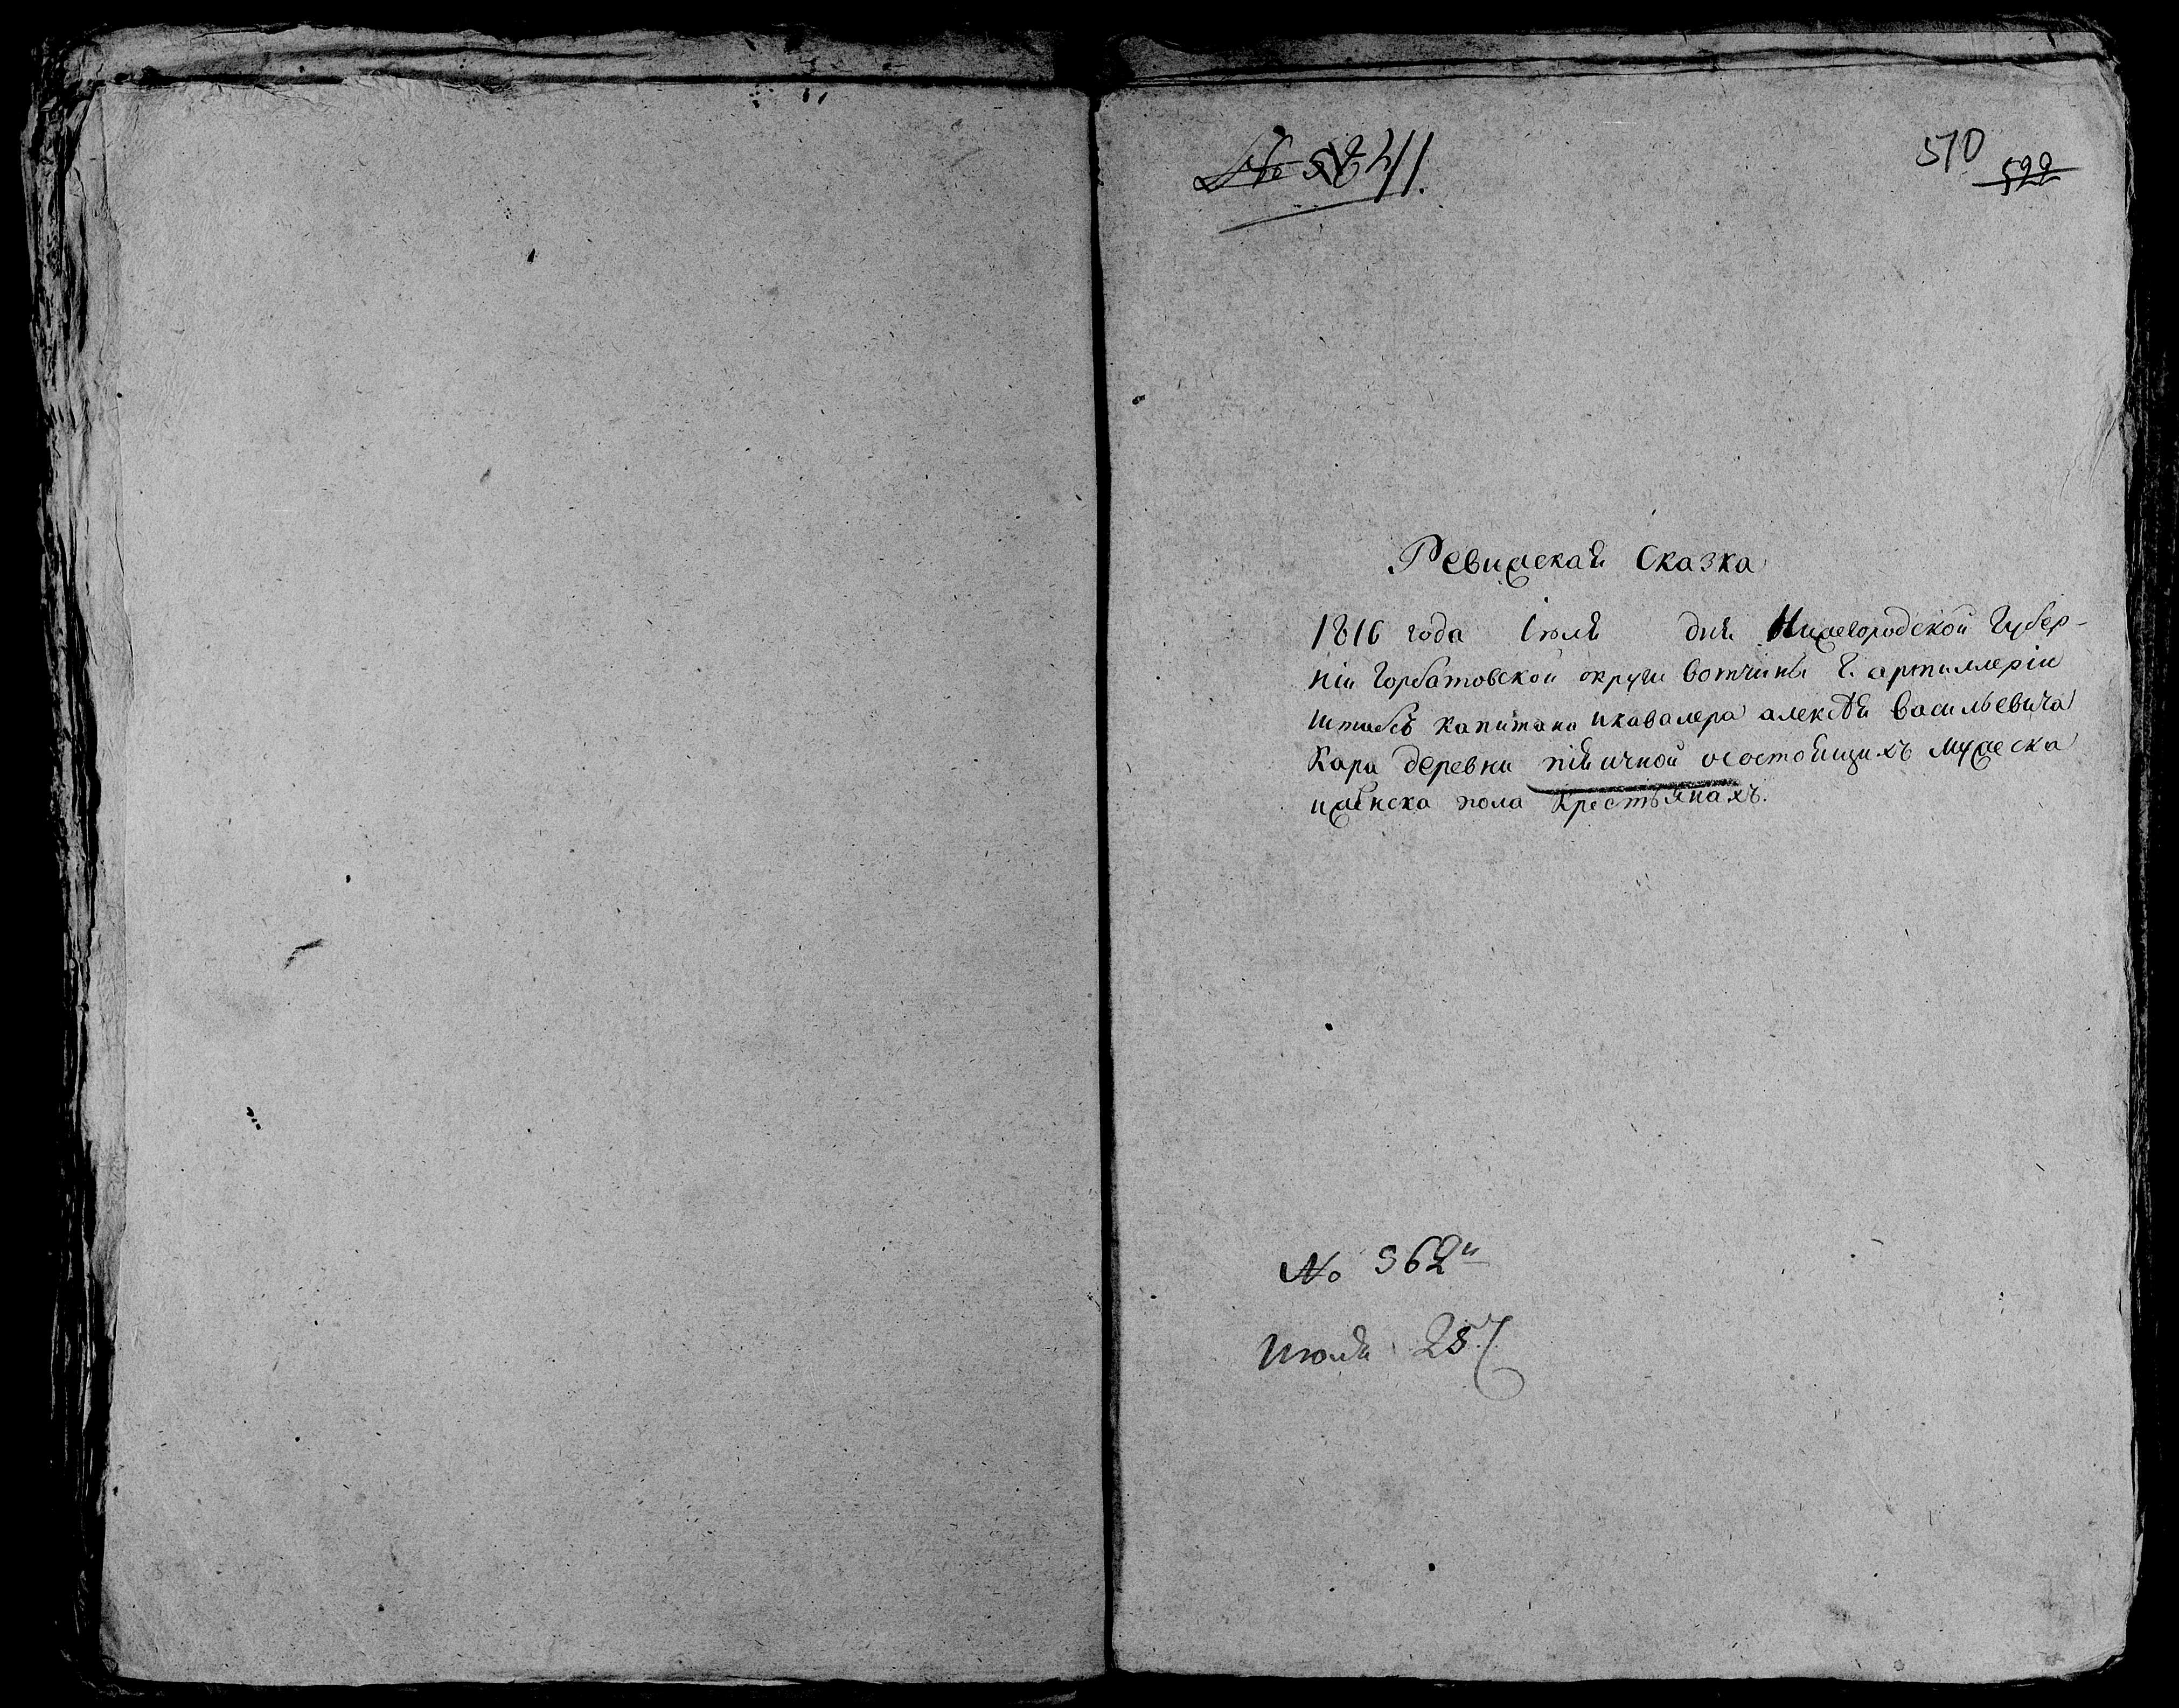 510
599
Ревижская Сказка
1816 года Іюля дня Нижегородской Губер-
ніи Горбатовской округи вотчины Г. артиллеріи
штабсъ капитана икавалера алексѣя васильевича
Кара деревни піяичной осостоящихъ мужеска
иженска пола крестьянахъ.
№ 362й
Июля 25